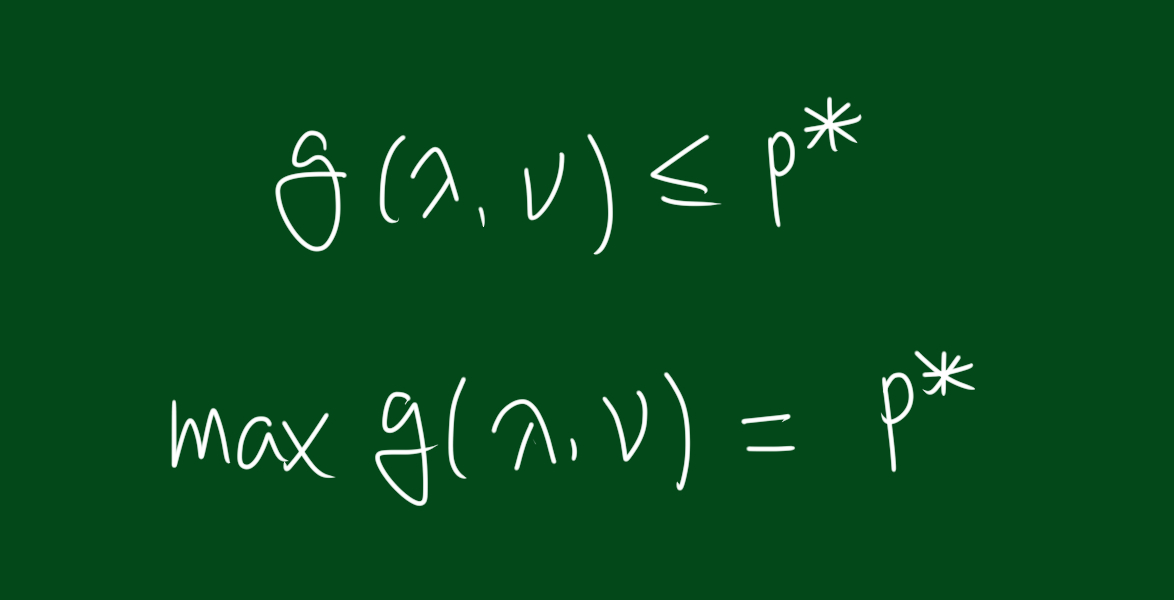 g(λ, ν) ≤ p*
max g(λ, ν) = p*